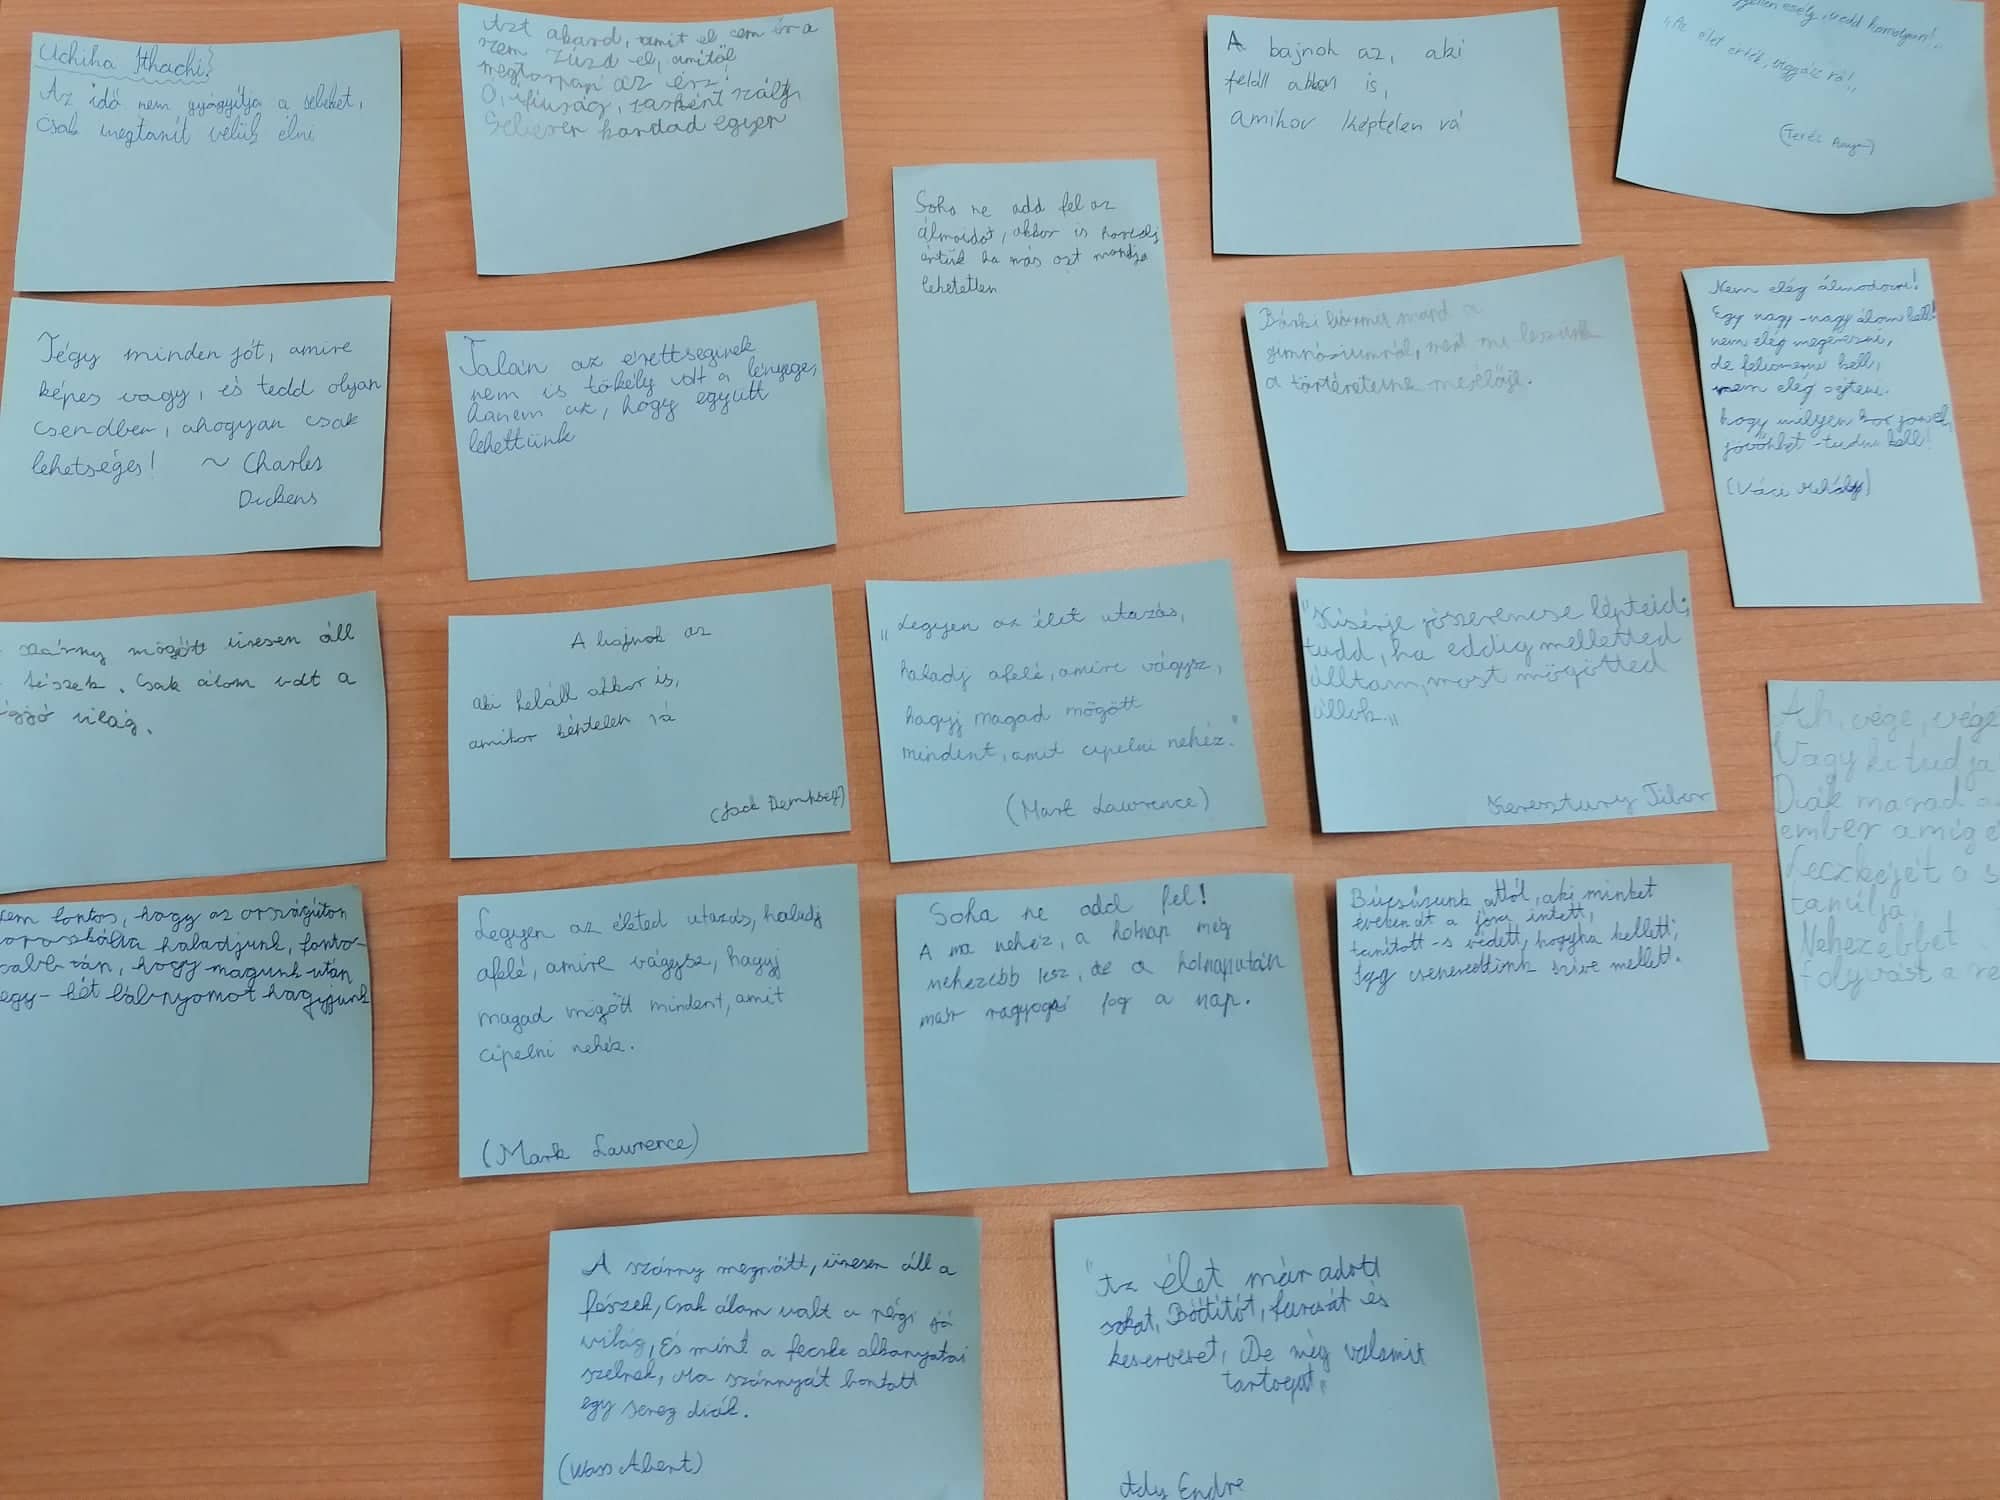 Uchiha Ithachi:
Az idő nem gyógyítja a sebeket,
csak megtanít velük élni
Azt akard, amit el sem ér a
szem Zúzd el, amitől
megtorpan az ész!
Ó, ifiúság, sasként szállj,
Sebesen kardad egyen
A bajnok az, aki
feláll akkor is,
amikor képtelen rá
esély, vedd komolyan!
"Az élet érték, vigyázz rá!"
(Teréz Anya)
Soha ne add fel az
álmaidat, akkor is harcolj
értük ha más azt mondja
lehetetlen
Tégy minden jót, amire
képes vagy, és tedd olyan
csendben, ahogyan csak
lehetséges! ~ Charles
Dickens
Talán az érettséginek
nem is tökély volt a lényege,
hanem az, hogy együtt
lehettünk
Bárki bármit mond a
gimnáziumról, mert mi leszünk
a történeteink mesélője.
Nem elég álmodozni!
Egy nagy-nagy álom kell!
nem elég megérezni,
de felismerni kell,
nem elég sejteni,
hogy milyen kor jön el,
jövőnket - tudni kell!
(Váci Mihály)
szárny mögött üresen áll
fészek. Csak álom volt a
világ.
A bajnok az
aki feláll akkor is,
amikor képtelen rá
(Jack Demhsey)
"Legyen az élet utazás,
haladj afelé, amire vágysz,
hagyj magad mögött
mindent, amit cipelni nehéz."
(Mark Lawrence)
"Kísérje jószerencse lépteid;
tudd, ha eddig melletted
álltam, most mögötted
állok."
Keresztury Tibor
Ah, vége, vége
Vagy ki tudja
Diák marad a
ember amíg é
Leczkéjét a s
tanúlja.
Nehezebbet
folyvást a ne
nem fontos, hogy az országúton
haladjunk, fonto-
sabb tán, hogy magunk után
egy-két lábnyomot hagyjunk
Legyen az életed utazás, haladj
afelé, amire vágysz, hagyj
magad mögött mindent, amit
cipelni nehéz.
(Mark Lawrence)
Soha ne add fel!
A ma nehéz, a holnap még
nehezebb lesz, de a holnapután
már ragyogni fog a nap.
Búcsúzunk attól, aki minket
éveken át a jóra intett,
tanított -s védett, hogyha kellett;
Így cseperedtünk szíve mellett.
A szárny megnőtt, üresen áll a
fészek, Csak álom volt a régi jó
világ, És mint a fecske alkonyatai
szélnek, Ma szárnyát bontott
egy sereg diák.
(Wass Albert)
"Az élet már adott
sokat, Bódítót, furcsát és
keserveset, De még valamit
tartogat"
Ady Endre